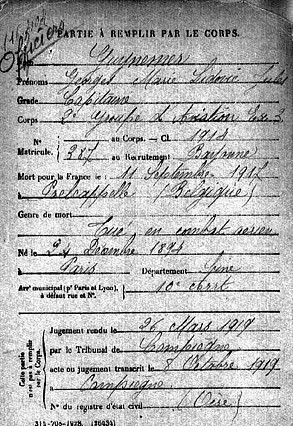 PARTIE À REMPLIR PAR LE CORPS.
Guynemer
Prénoms Georges Marie Ludovic Jules
Grade Capitaine
Corps 2e Groupe d'Aviation
N° Matricule. au Corps. — Cl. 1914
387 au Recrutement Bayonne
Mort pour la France le 11 Septembre 1917
à Poelcappelle (Belgique)
Genre de mort
Tué en combat aérien
Né le 24 Décembre 1894
à Paris Département Seine
Arrt municipal (pr Paris et Lyon), à défaut rue et N°. 16e arrt
Cette partie n'est pas à remplir par le Corps.
Jugement rendu le 26 Mars 1919
par le Tribunal de Compiègne
acte ou jugement transcrit le 8 Octobre 1919
à Compiègne
N° du registre d'état civil (Oise)